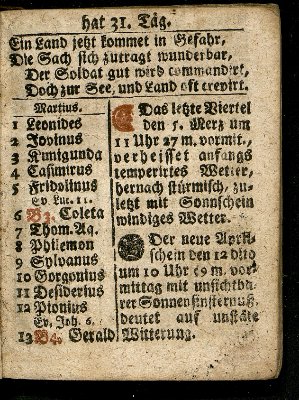 hat 31. Tag.
Ein Land jetzt kommet in Gefahr,
Die Sach sich zutragt wunderbar,
Der Soldat gut wird commandirt,
Doch zur See, und Land oft crepirt.
Martius.
1 Leonides
2 Jovinus
3 Kunigunda
4 Casimirus
5 Fridolinus
Ev Luc. 11.
6 B3. Coleta
7 Thom. Aq.
8 Philemon
9 Sylvanus
10 Gorgonius
11 Desiderius
12 Pionius
Ev. Joh. 6.
13 B4. Gerald
Das letzte Viertel
den 5. Merz um
11 Uhr 27 m. vormit.,
verheisset anfangs
temperirtes Wetter,
hernach stürmisch, zu-
letzt mit Sonnschein
windiges Wetter.
Der neue April-
schein den 12 dito
um 10 Uhr 59 m. vor-
mittag mit unsichtba-
rer Sonnenfinsternuß,
deutet auf unstäte
Witterung.